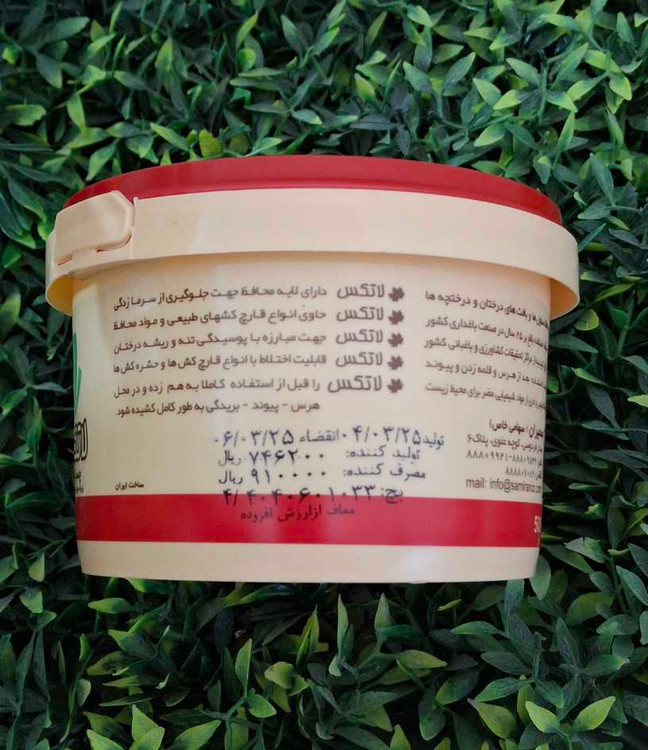 لاتکس دارای لایه محافظ جهت جلوگیری از سرمازدگی
لاتکس حاوی انواع قارچ کشهای طبیعی و مواد محافظ
لاتکس جهت مبارزه با پوسیدگی تنه و ریشه درختان
لاتکس قابلیت اختلاط با انواع قارچ کش ها و حشره کش ها
لاتکس را قبل از استفاده کاملا به هم زده و در محل
هرس - پیوند - بریدگی به طور کامل کشیده شود.
تولید ۰۴/۰۳/۲۵ انقضاء ۰۶/۰۳/۲۵
تولید کننده: ۷۴۶۲۰۰ ریال
مصرف کننده: ۹۱۰۰۰۰ ریال
بچ:
معاف از ارزش افزوده
ساخت ایران
بافت های درختان و درختچه ها
سال در صنعت باغداری کشور
تحقیقات کشاورزی و باغبانی کشور
بعد از هرس و قلمه زدن و پیوند
مواد شیمیایی مضر برای محیط زیست
(سهامی خاص)
کوچه علوی، پلاک۶
mail: info@samiranco.com